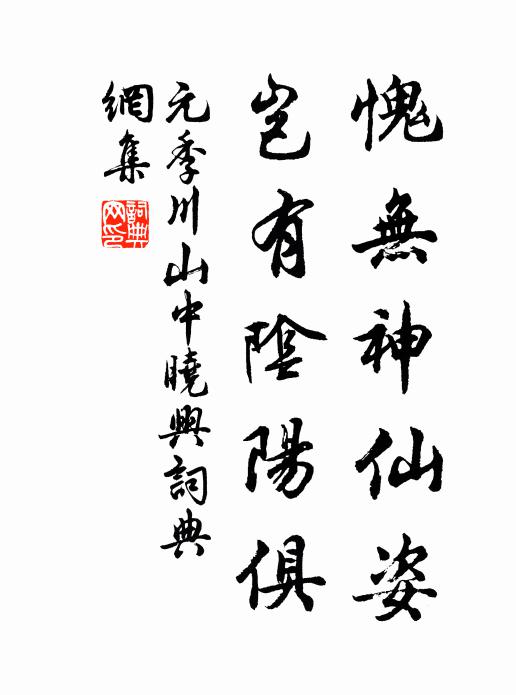 愧無神仙姿
豈有陰陽俱
元季川山中曉興詞典
網集
詞典網印